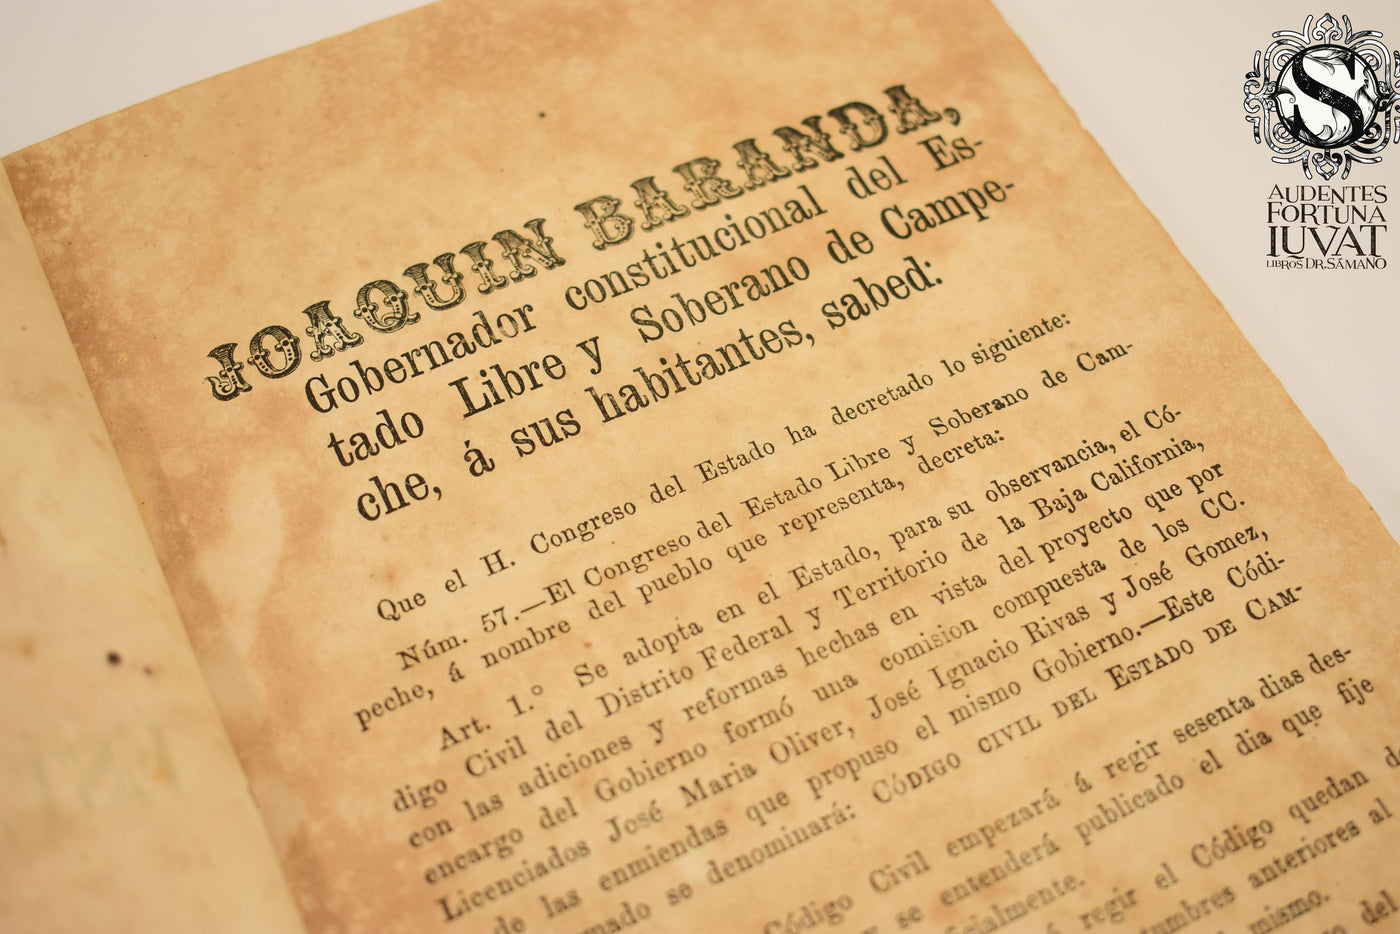 JOAQUIN BARANDA,
Gobernador constitucional del Es-
tado Libre y Soberano de Campe-
che, á sus habitantes, sabed:
Que el H. Congreso del Estado ha decretado lo siguiente:
Núm. 57.—El Congreso del Estado Libre y Soberano de Cam-
peche, á nombre del pueblo que representa, decreta:
Art. 1.° Se adopta en el Estado, para su observancia, el Có-
digo Civil del Distrito Federal y Territorio de la Baja California,
con las adiciones y reformas hechas en vista del proyecto que por
encargo del Gobierno formó una comision compuesta de los CC.
Licenciados José Maria Oliver, José Ignacio Rivas y José Gomez,
de las enmiendas que propuso el mismo Gobierno.—Este Códi-
mado se denominará: CÓDIGO CIVIL DEL ESTADO DE CAM-
Código Civil empezará á regir sesenta dias des-
y se entenderá publicado el dia que fije
cialmente.
á regir el Código quedan
tumbres anteriores al
mismo.
del
S
AUDENTES
FORTUNA
IUVAT
LIBROS DR. SÁMANO